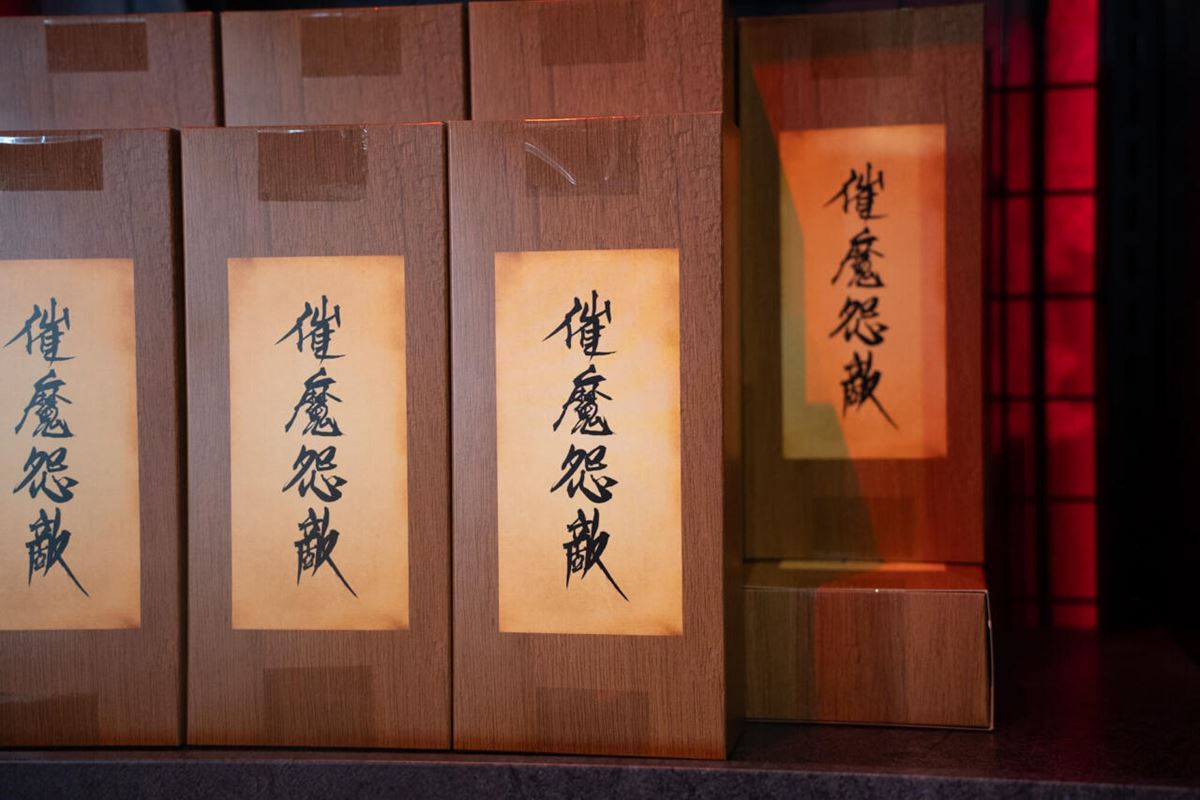 催魔怨敵
催魔怨敵
催魔怨敵
催魔怨敵